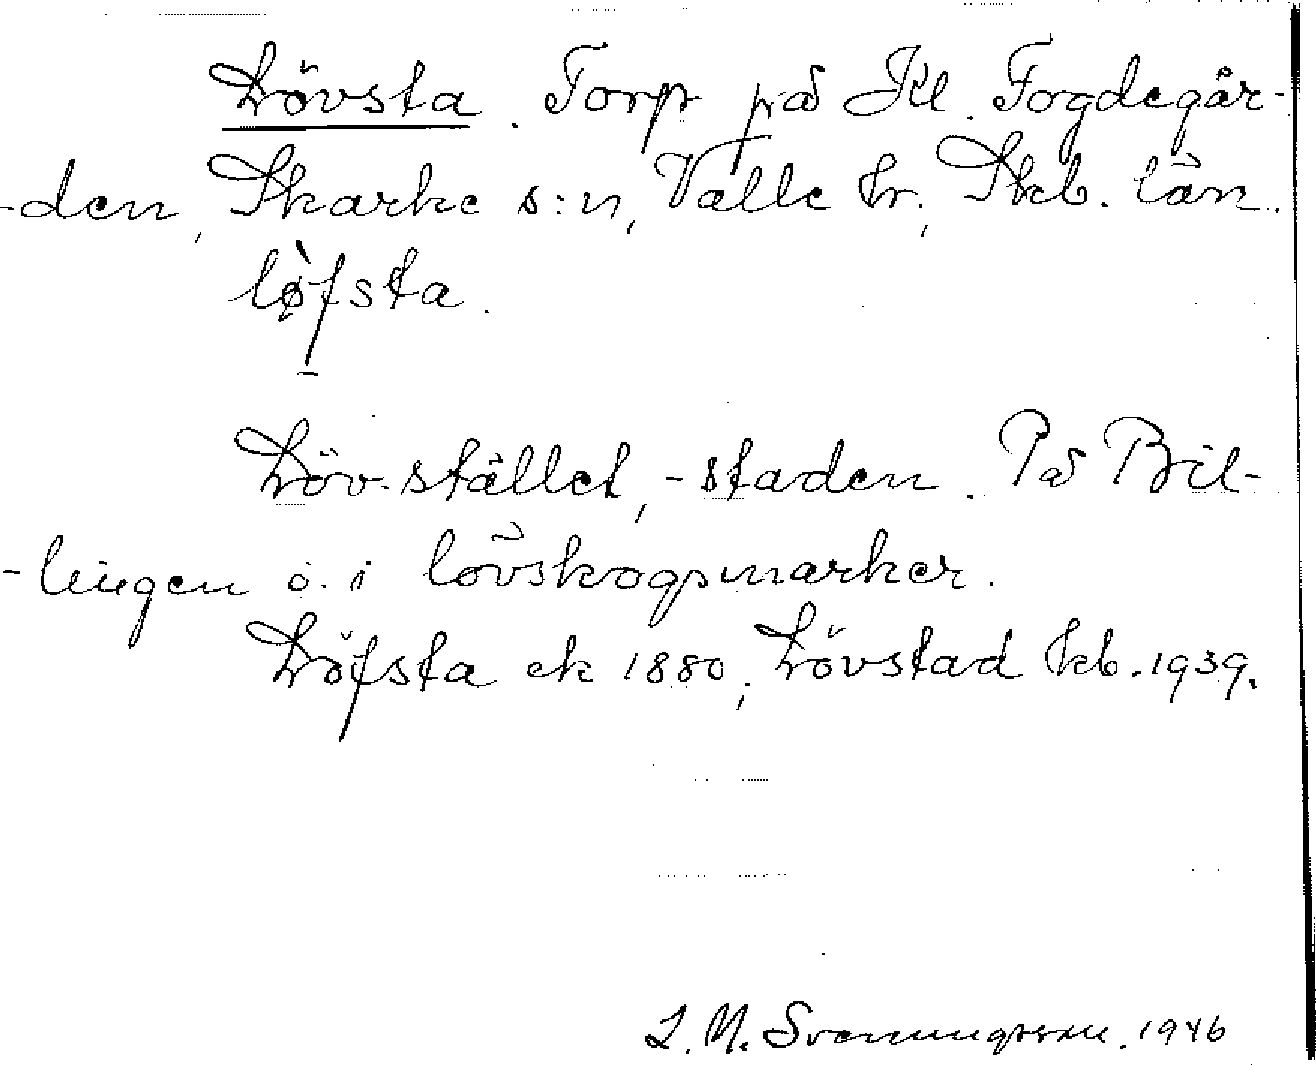 Lövsta. Torp på Kl. Fogdegår-
-den, Skarke s:n, Valle hr., Skb. län.
lø̀fsta.
Löv-stället, -staden. På Bil-
-lingen o. i lövskogsmarker.
Löfsta ek 1880, Lövstad kb. 1939.
L. N. Svenungsson. 1946